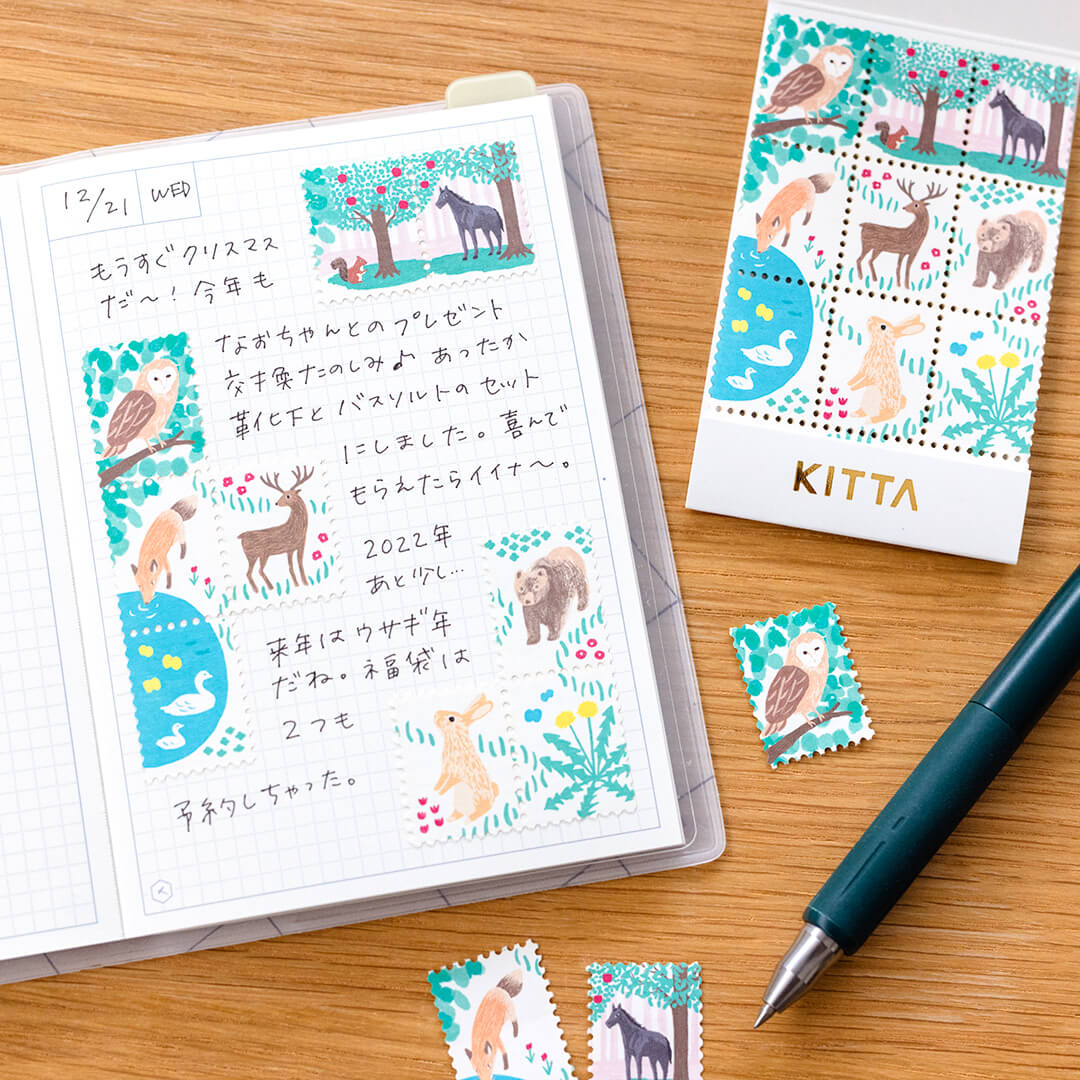 12/21 WED
もうすぐクリスマス
だ〜！今年も
なおちゃんとのプレゼント
交換たのしみ♪あったか
靴下とバスソルトのセット
にしました。喜んで
もらえたらイイナ〜。
2022年
あと少し…
来年はウサギ年
だね。福袋は
2つも
予約しちゃった。
KITTA